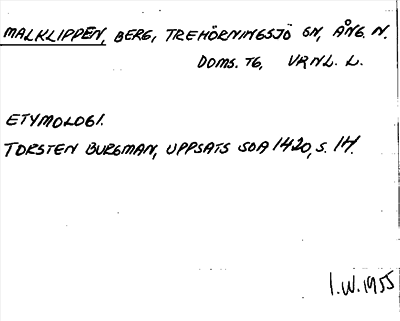 MALKLIPPEN, BERG, TREHÖRNINGSJÖ SN, ÅNG. N.
DOMS. TG, VRNL. L.
ETYMOLOGI.
TORSTEN BURGMAN, UPPSATS SOA 1420, S. 14.
I.W. 1955